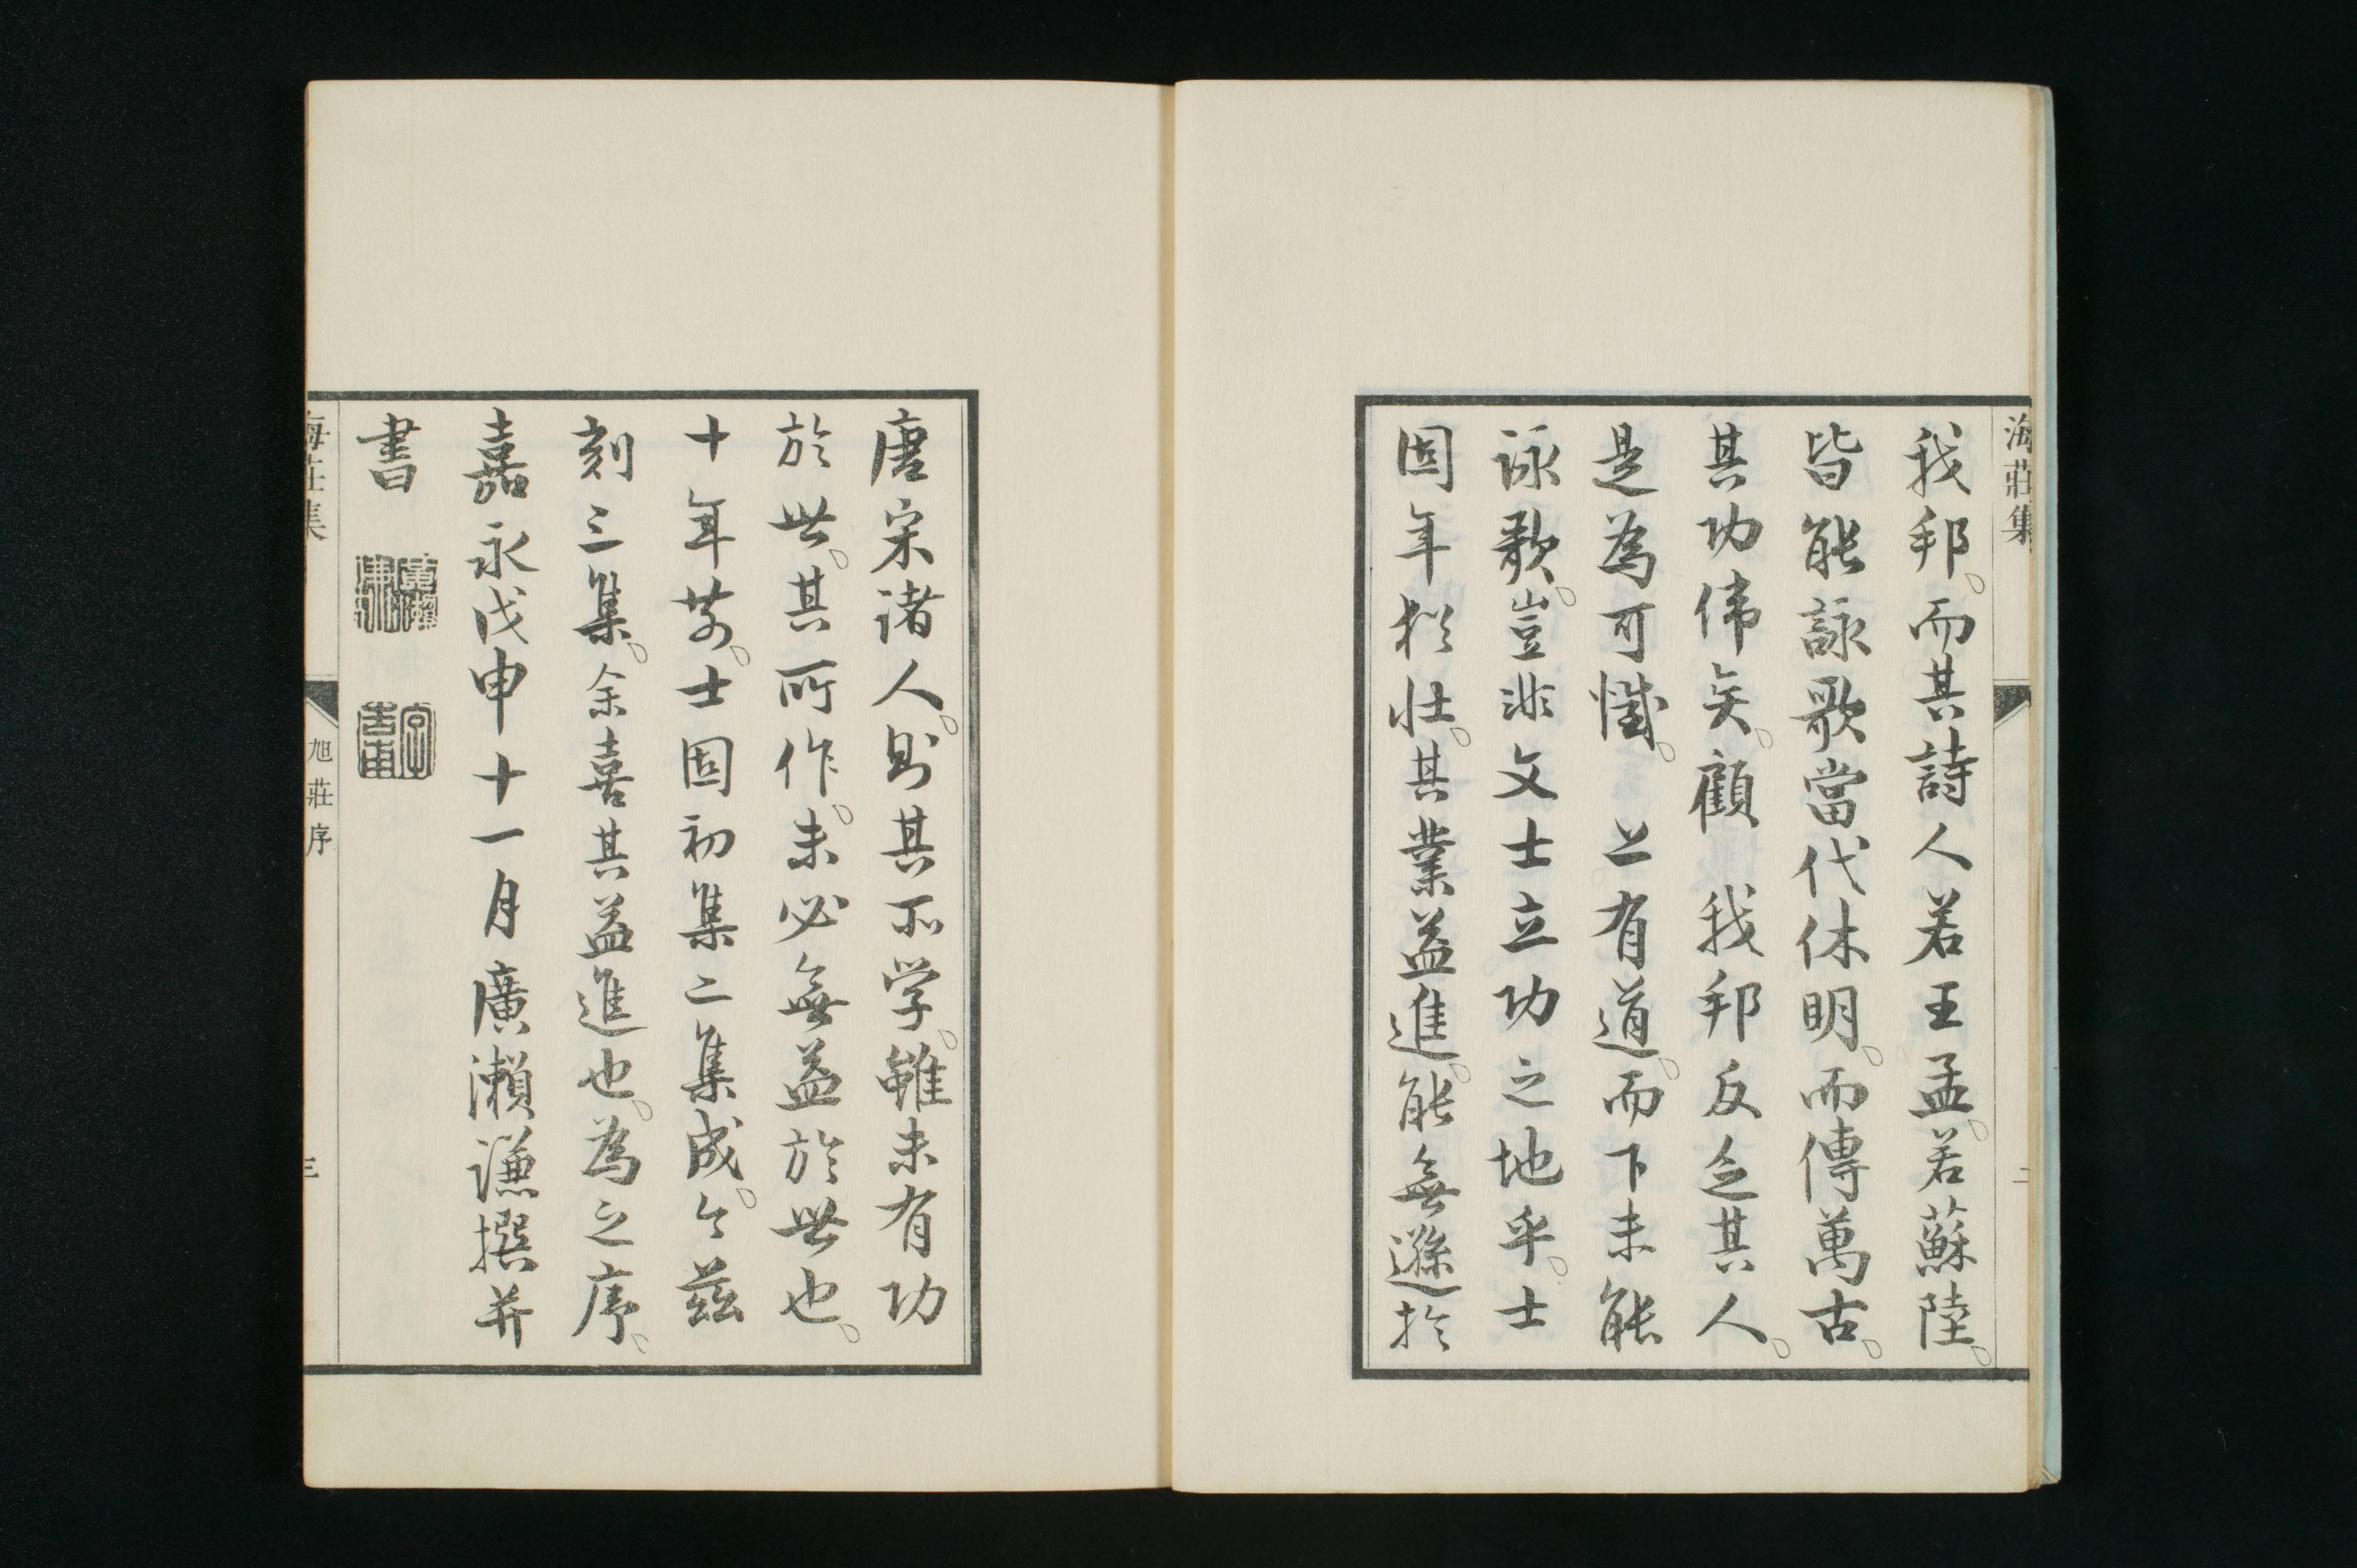 海莊集
二
我邦。而其詩人若王孟。若蘇陸。
皆能詠歌當代休明。而傳萬古。
其功偉矣。顧　我邦反乏其人。
是為可慨。　上有道。而下未能
詠歌。豈非文士立功之地乎。士
固年猶壯。其業益進。能無遜於
唐宋諸人。則其不学。雖未有功
於世。其所作。未必無益於世也。
十年前。士固初集二集成。今茲
刻三集。余喜其益進也。為之序。
嘉永戊申十一月廣瀨謙撰并
書
海莊集
旭莊序
三